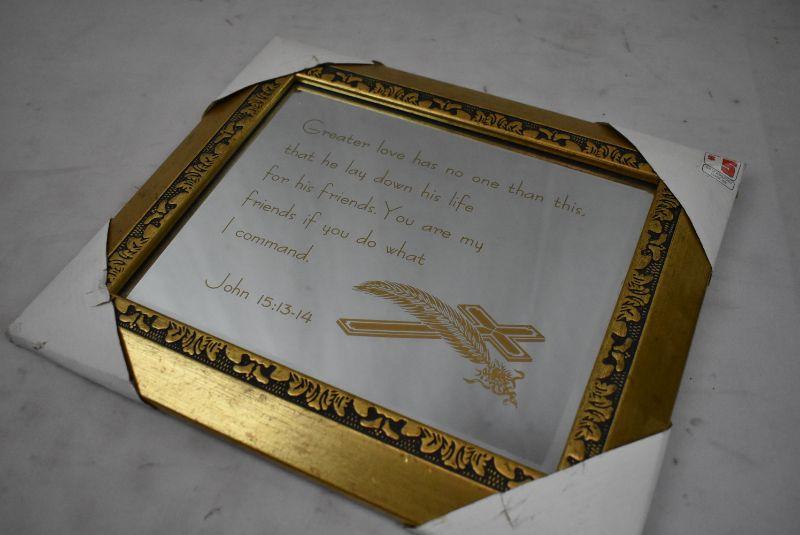 Greater love has no one than this,
that he lay down his life
for his friends. You are my
friends if you do what
I command.
John 15:13-14